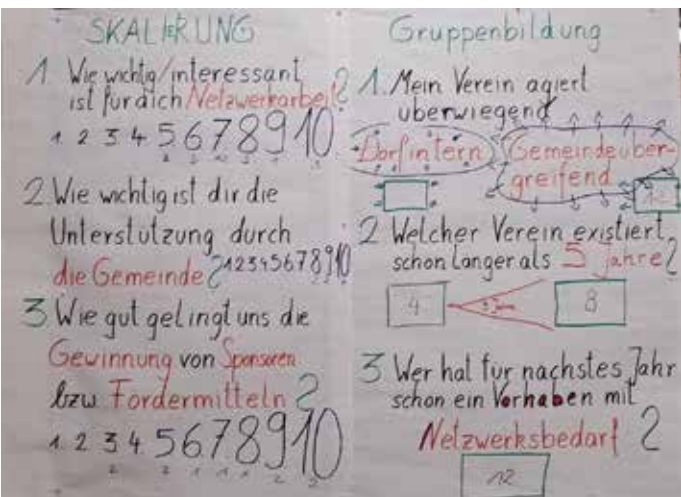 SKALIERUNG
1. Wie wichtig/interessant
ist für dich Netzwerkarbeit?
1 2 3 4 5 6 7 8 9 10
2 Wie wichtig ist dir die
Unterstützung durch
die Gemeinde? 1 2 3 4 5 6 7 8 9 10
3. Wie gut gelingt uns die
Gewinnung von Sponsoren
bzw Fördermitteln?
1 2 3 4 5 6 7 8 9 10
2 2 1 1 1 2 2
Gruppenbildung
1. Mein Verein agiert
überwiegend
Dorfintern Gemeindeüber-
greifend
12
2 Welcher Verein existiert
schon länger als 5 Jahre?
4 8
3 Wer hat für nächstes Jahr
schon ein Vorhaben mit
Netzwerksbedarf?
12